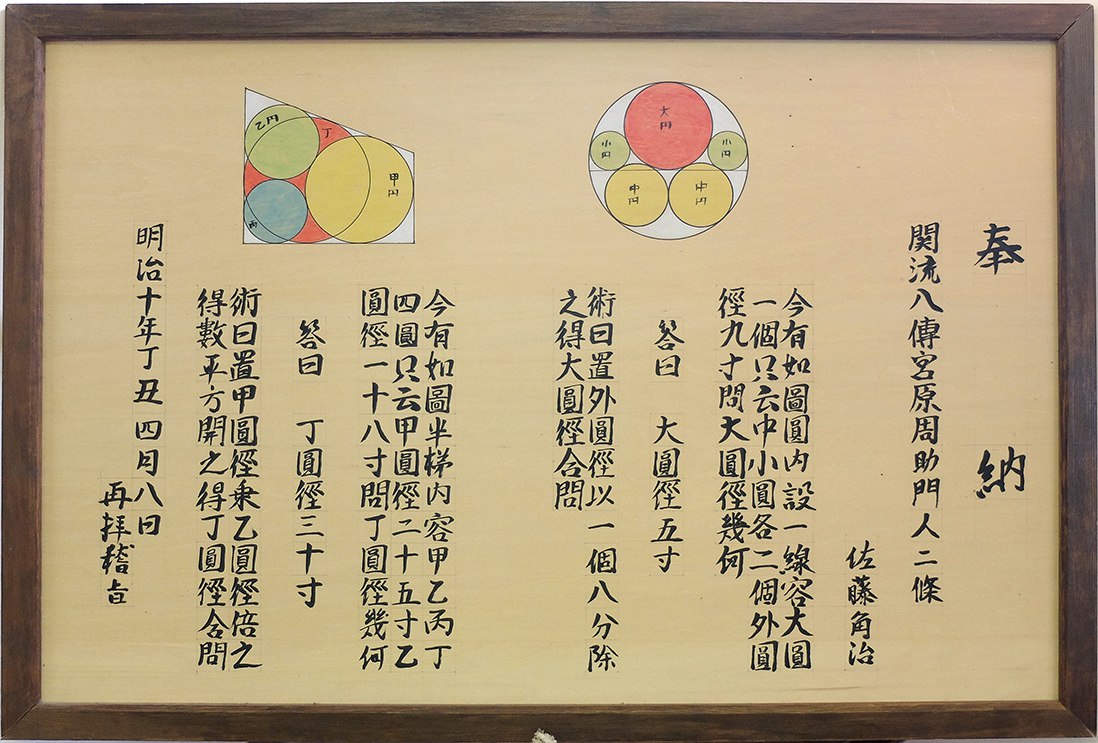 奉納
関流八傳宮原周助門人二條
佐藤角治
大円
小円
小円
中円
中円
今有如圖圓内設一線容大圓
一個只云中小圓各二個外圓
徑九寸問大圓徑幾何
答曰 大圓徑五寸
術曰置外圓徑以一個八分除
之得大圓徑合問
乙円
丁
甲円
丙
今有如圖半梯内容甲乙丙丁
四圓只云甲圓徑二十五寸乙
圓徑一十八寸問丁圓徑幾何
答曰 丁圓徑三十寸
術曰置甲圓徑乗乙圓徑倍之
得數平方開之得丁圓徑合問
明治十年丁丑 四月八日
再拝稽首